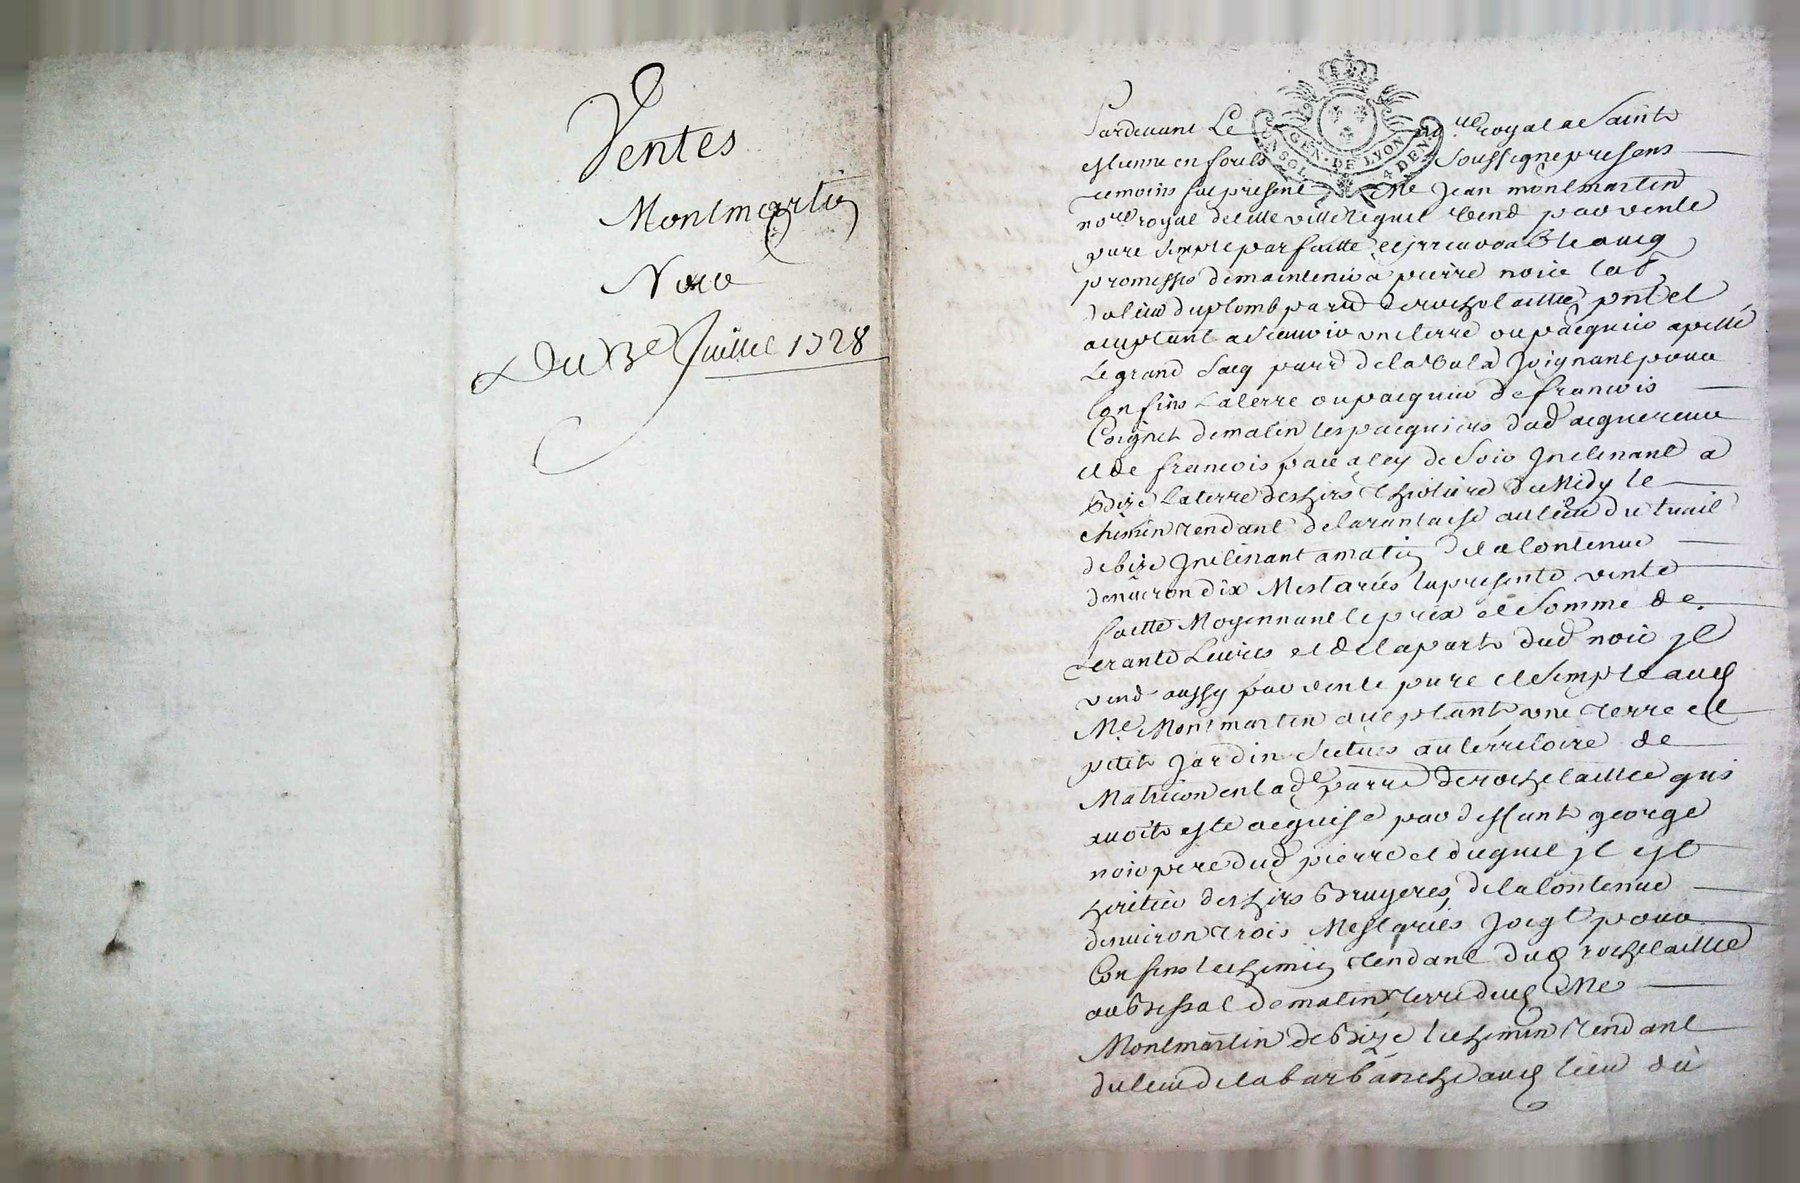 Ventes
Montmartin
Noir
Du 3e Juillet 1728
GEN · DE LYON
4 DEN
Pardevant Le no re royal a Saint
estienne en forest soussigne presens
temoins fut present Me Jean montmartin
no re royal de cette ville lequel vend par vente
pure simple parfaitte et jrrevocable avecq
promesse de maintenir a pierre noir lab
du lieu du plomb parr de rochelaillee pnt et
aceptant a scavoir une terre ou pacquier apellé
Le grand Sacq parr de la joignant pour
Confins la terre ou pacquier de francois
Coignet de matin les pacquiers dud acquereur
et de francois de soir Jnclinant a
bize La terre des hers du Midy le
chemin tendant de larantaise au lieu du treuil
de bize Jnclinant a matin de la Contenue
denviron dix Mestariés la presente vente
faitte Moyennant le prix et Somme de
trante Livres et de la part dud noir jl
vend aussy par vente pure et simple aud
Me Montmartin aceptant une terre et
petit jardin scitues au territoire de
Matricon en lad parre de rochelaillee qui
avoit esté acquise par deffunt george
noir pere dud pierre et duquel jl est
heritier des hers bruyeres de la Contenue
denviron trois Mestariés joigt pour
Confins le chemin tendant dud rochelaillee
au bessat de matin terre dud Me
Montmartin de bize le chemin tendant
du lieu de la barbanche aud lieu du